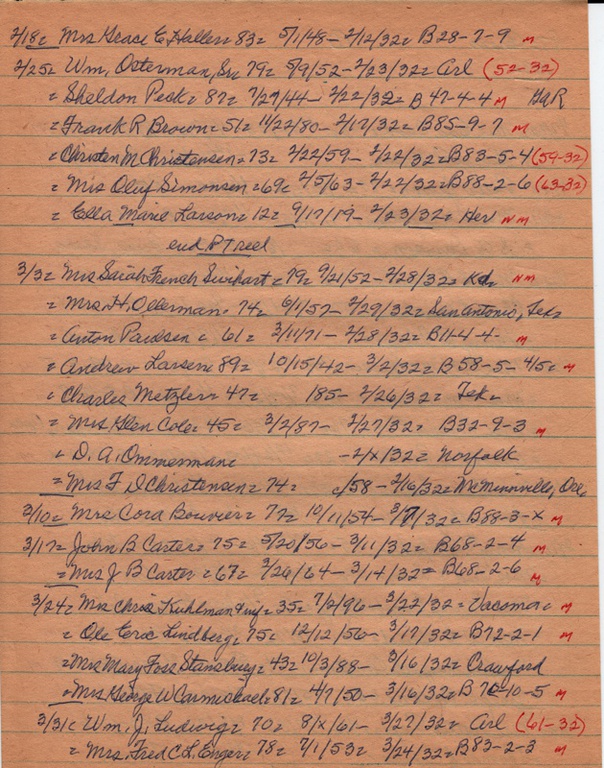 2/18= Mrs Grace E Haller= 83= 5/1/48 - 2/12/32= B28-7-9 M
2/25= Wm, Osterman, Sr= 79= 5/9/52 - 2/23/32= Arl (52-32)
= Sheldon Peck= 87= 7/27/44 - 2/22/32= B 47-4-4 M GaR
= Frank R Brown= 51= 11/22/80 - 2/17/32= B85-9-7 M
= Christen M Christensen= 73= 2/22/59 - 2/22/32= B83-5-4 (59-32)
= Mrs Oluf Simonsen= 69= 2/5/63 - 2/22/32= B88-2-6 (63-32)
= Ella Marie Larson= 12= 9/17/19 - 2/23/32= Her NM
end P T reel
3/3= Mrs Sarah French Swihart= 79= 9/21/52 - 2/28/32= Kd= NM
= Mrs. H. Ollerman= 74= 6/1/57 - 2/29/32= San Antonio, Tex=
= Anton Paulsen= 61= 3/11/71 - 2/28/32= B11-4-4- M
= Andrew Larsen= 89= 10/15/42 - 3/2/32= B58-5-4/5= M
= Charles Metzler= 47= 185- 2/26/32= Tex=
= Mrs Glen Cole= 45= 3/2/87 - 2/27/32= B32-9-3 M
= D. A. Ommerman= - 2/x/32= Norfolk
= Mrs F D Christensen= 74= c/58 - 2/16/32= McMinnville, Ore,
3/10= Mrs Cora Bouvier= 77= 10/11/54 - 3/7/32= B88-3-x M
3/17= John B Carter= 75= 5/20/56 - 3/11/32= B68-2-4 M
= Mrs J B Carter= 67= 3/26/64 - 3/14/32= B68-2-6 M
3/24= Mrs Chris Kuhlman 35= 7/2/96 - 3/22/32= Vacoma= M
= Ole Eric Lindberg= 75= 12/12/56 - 3/17/32= B72-2-1 M
= Mrs Mary Foss Stansbury= 43= 10/3/88 - 3/16/32= Crawford
= Mrs George W Carmichael= 81= 4/7/50 - 3/16/32= B 76-10-5 M
3/31= Wm. J. Ludwig= 70= 8/x/61 - 3/27/32= Arl (61-32)
= Mrs. Fred C. L. Enger= 78= 7/1/53= 3/24/32= B83-2-3 M